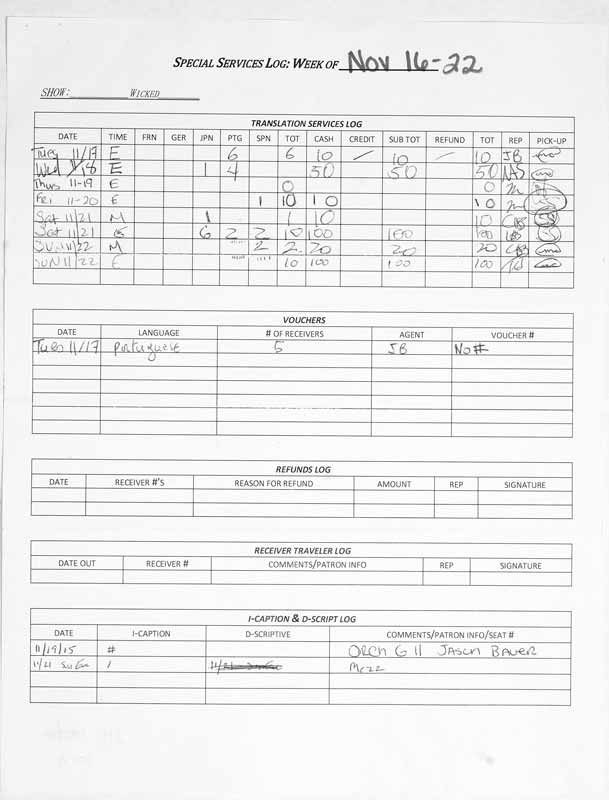 SPECIAL SERVICES LOG: WEEK OF Nov 16-22
SHOW: WICKED
TRANSLATION SERVICES LOG
DATE TIME FRN GER JPN PTG SPN TOT CASH CREDIT SUB TOT REFUND TOT REP PICK-UP
Tues 11/17 E 6 6 10 / 10 / 10 JB
Wed 11/18 E 1 4 50 50 50
Thus 11-19 E 0 0
Fri 11-20 E 1 10 10 10
Sat 11/21 M 1 1 10 10
Sat 11/21 E 6 2 2 10 100 100 100
SUN 11/22 M 2 2 20 20 20
SUN 11/22 E 10 100 100 100
VOUCHERS
DATE LANGUAGE # OF RECEIVERS AGENT VOUCHER #
Tues 11/17 Portuguese 5 JB No#
REFUNDS LOG
DATE RECEIVER #'S REASON FOR REFUND AMOUNT REP SIGNATURE
RECEIVER TRAVELER LOG
DATE OUT RECEIVER # COMMENTS/PATRON INFO REP SIGNATURE
I-CAPTION & D-SCRIPT LOG
DATE I-CAPTION D-SCRIPTIVE COMMENTS/PATRON INFO/SEAT #
11/19/15 # ORCH G 11 JASON BAUER
11/21 1